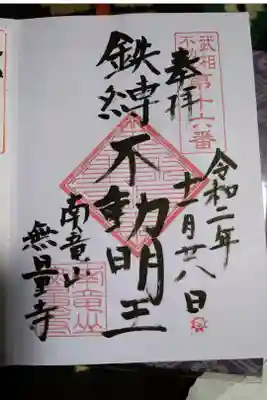 武相
第十六番
奉拝
令和二年
十一月廿八日
鉄縛
不動明王
南竜山
無量寺